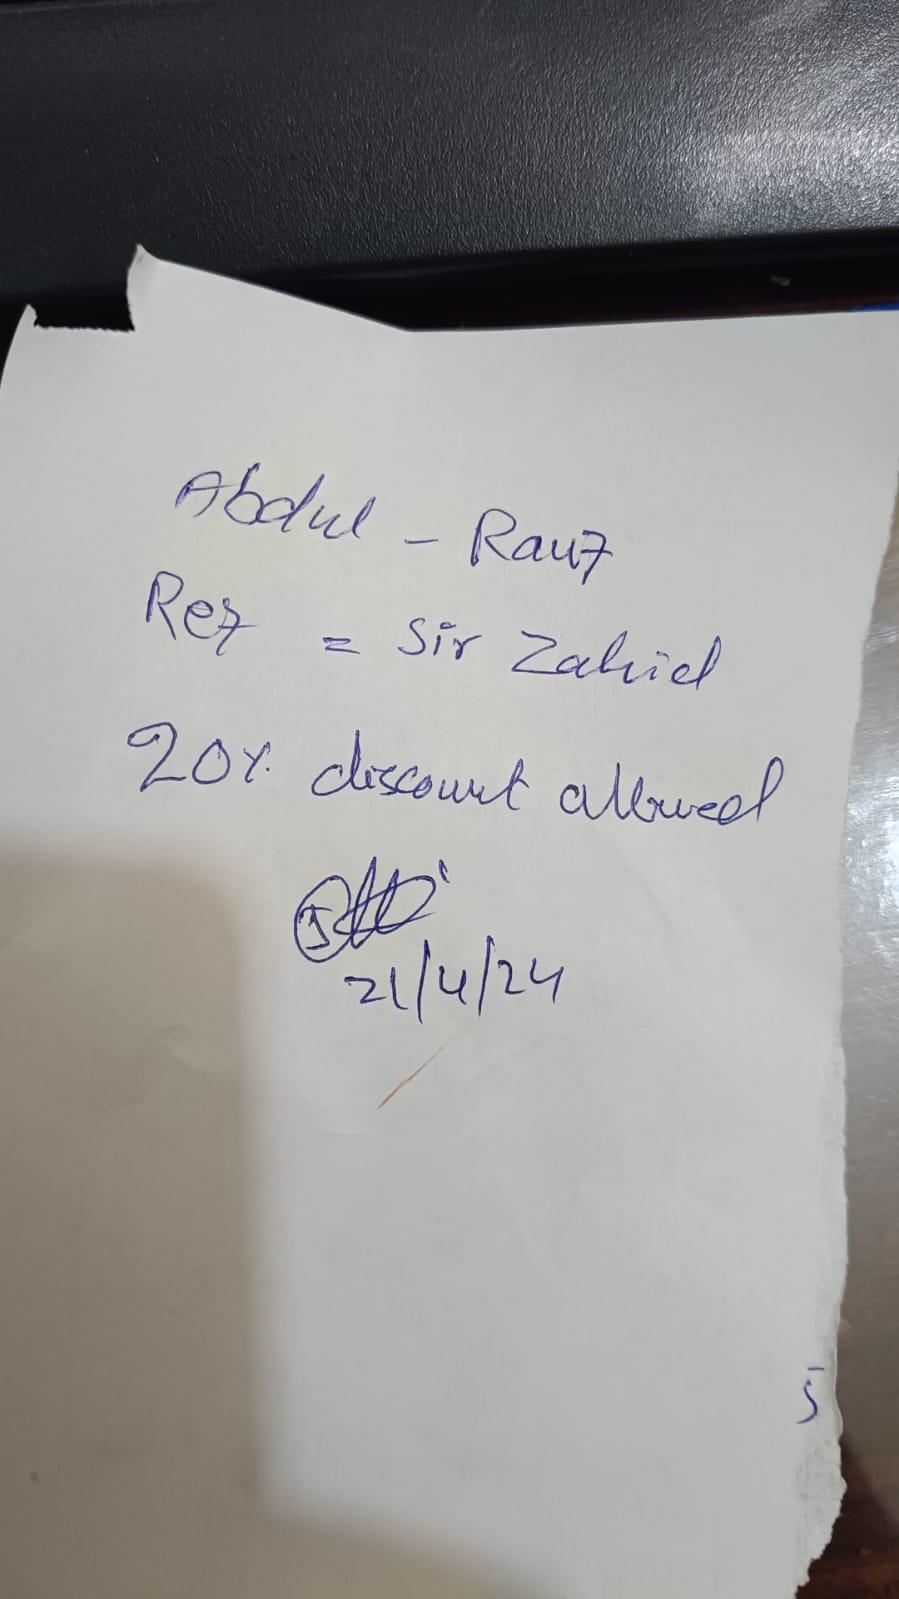 Abdul - Rauf
Ref = Sir Zahid
20% discount allowed
21/4/24
5